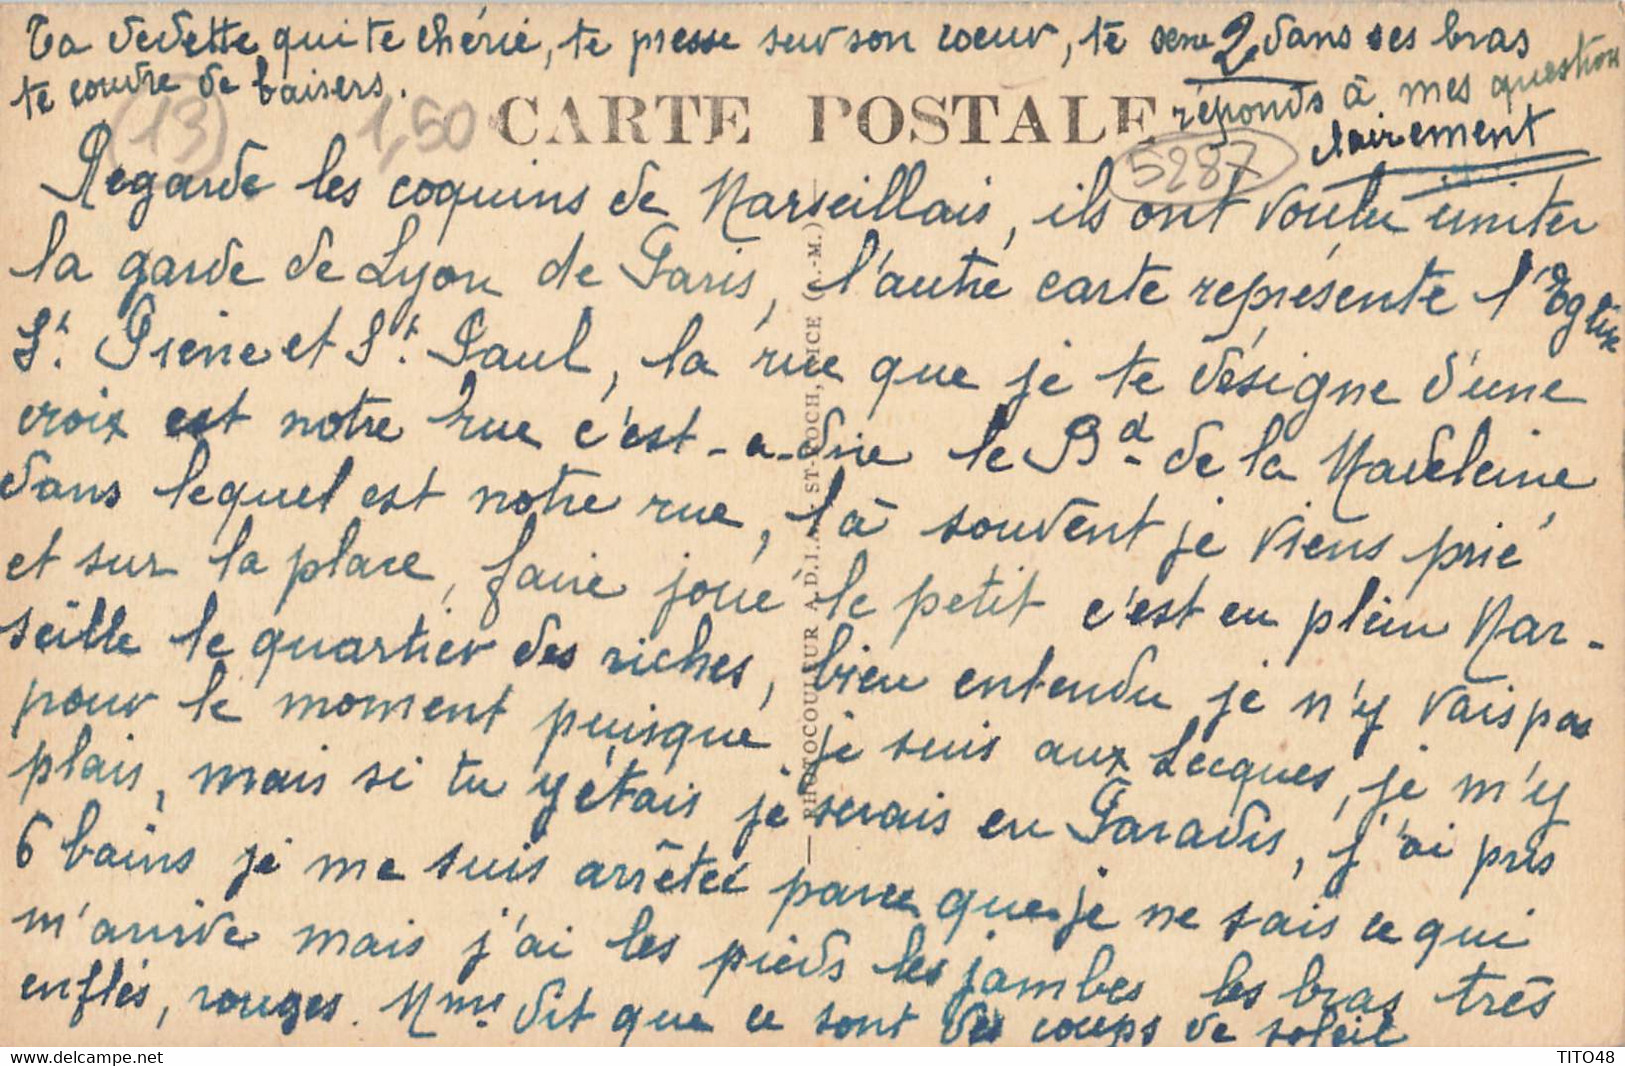 Ta vedette qui te chérie, te presse sur son coeur, te serre 2 dans ses bras
te couvre de baisers.
réponds à mes question
clairement
(13) 1,50
CARTE POSTALE
5287
Regarde les coquins de Marseillais, ils ont voulu imiter
la garde de Lyon de Paris, l'autre carte représente l'Eglise
St. Pierre et St. Paul, la rue que je te désigne d'une
croix est notre rue c'est-a-dire le Bd de la Madeleine
dans lequel est notre rue, là souvent je viens prié
et sur la place, faire joué le petit c'est en plein Mar-
seille le quartier des riches, bien entendu je n'y vais pas
pour le moment puisque je suis aux Lecques, je m'y
plais, mais si tu y étais je serais en Paradis, j'ai pris
6 bains je me suis arrêteé parce que je ne sais ce qui
m'arrive mais j'ai les pieds les jambes les bras très
enflés, rouges. Mme dit que ce sont des coups de soleil
— PHOTOCOULEUR A.D.I.A. ST-ROCH, NICE (A.-M.) —
TITO48